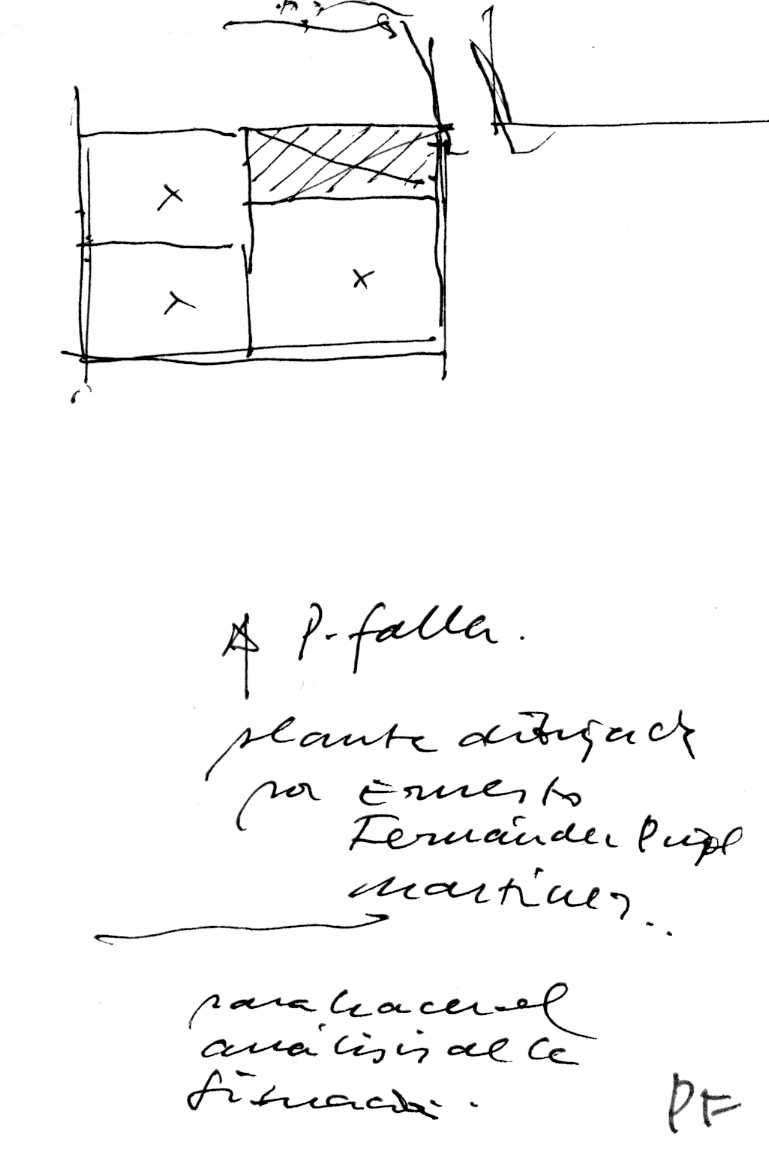 X
X
X
P. falla.
planta dibujada
por Ernesto
Fernández Puig
Martínez..
para hacer el
análisis de la
situación.
PF